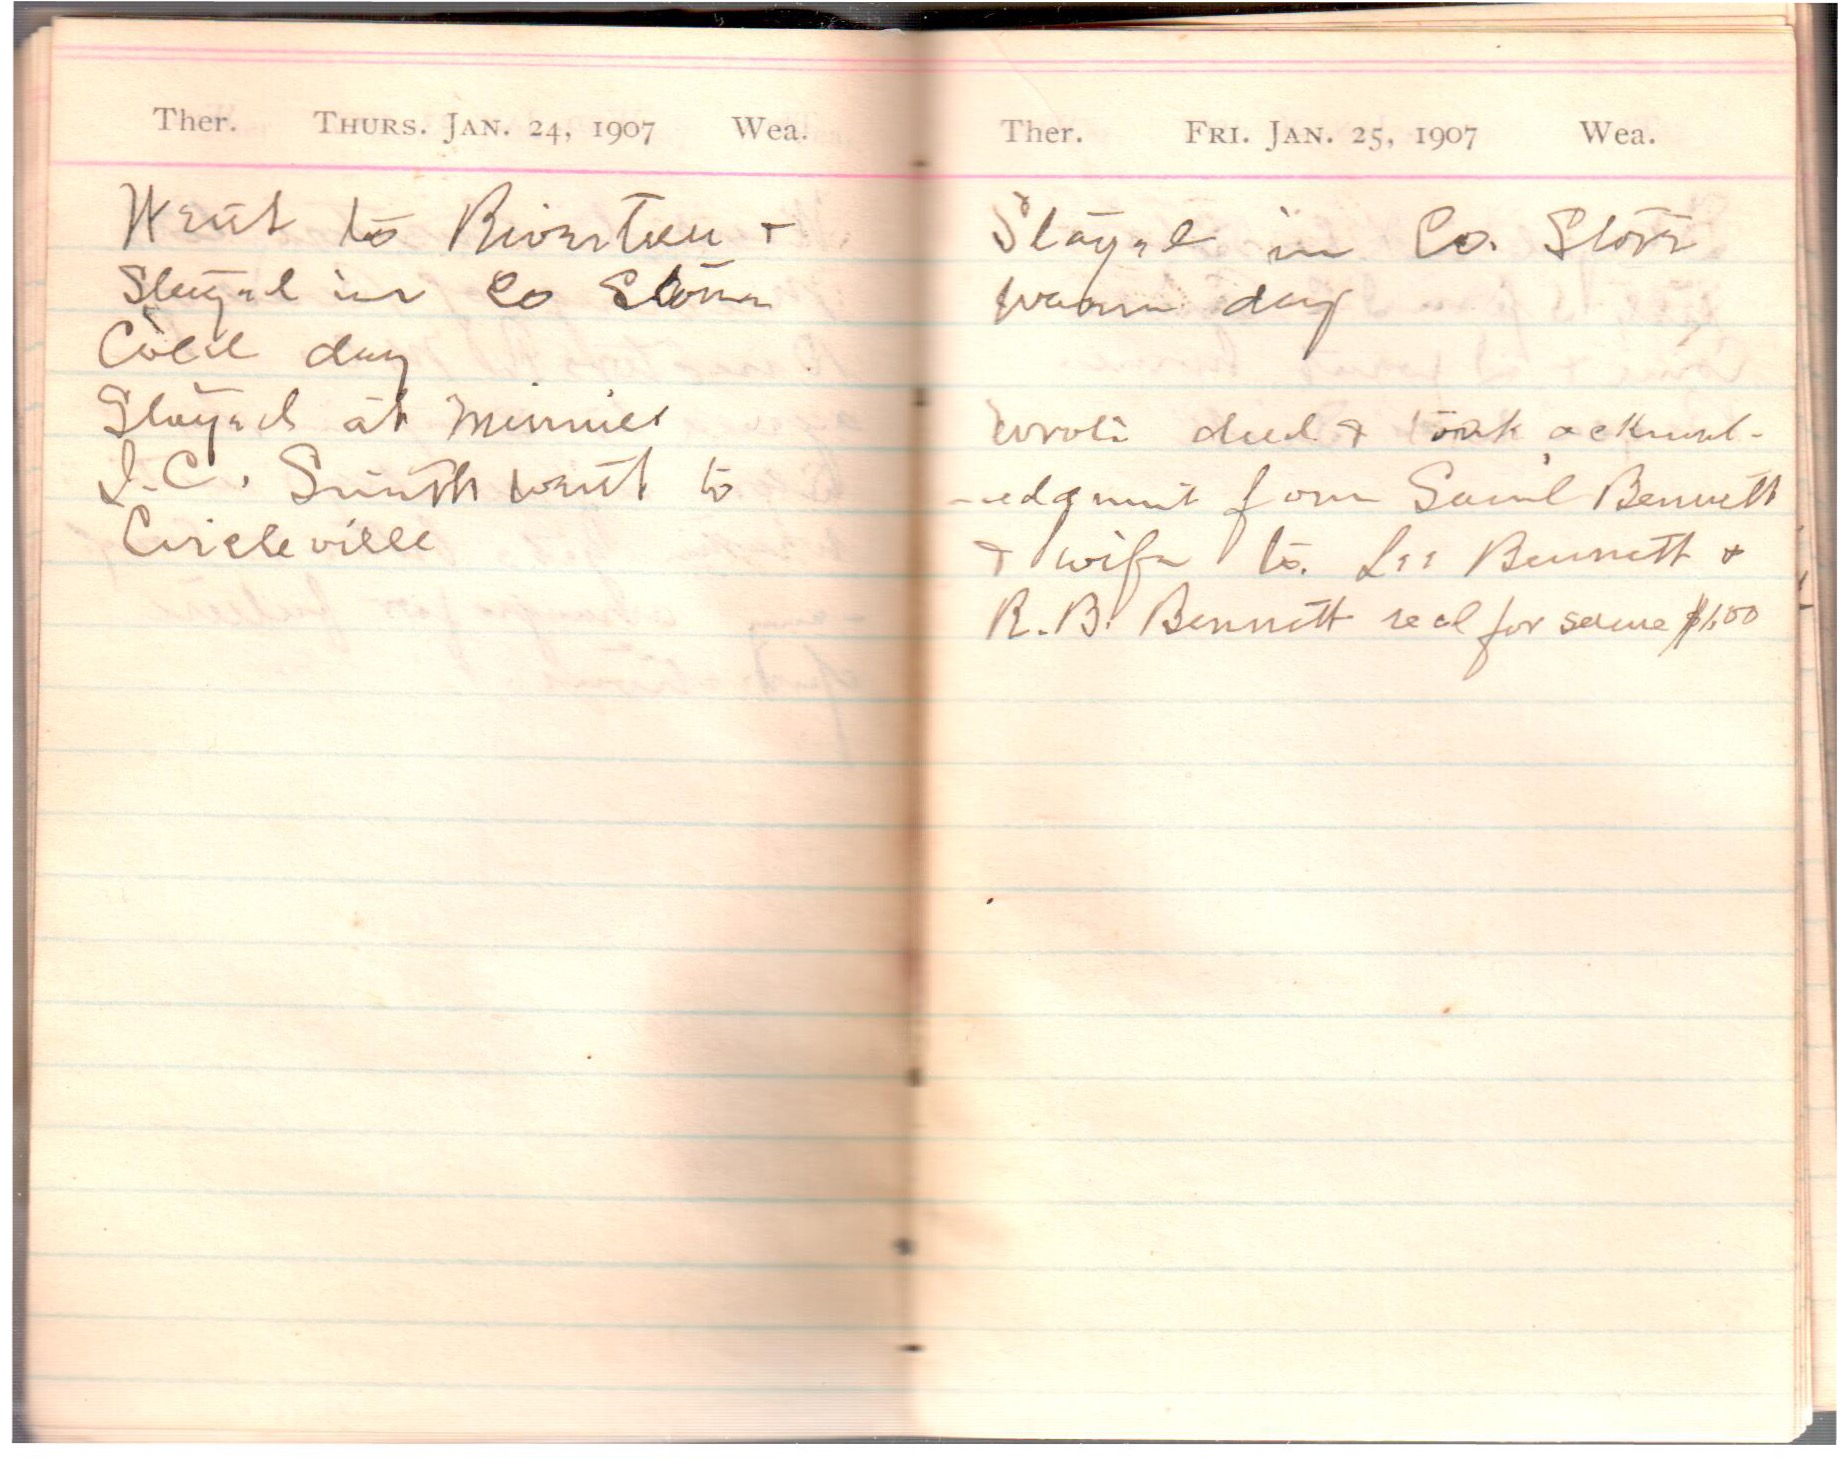 Ther. THURS. JAN. 24, 1907 Wea.
Went to Riverton +
Stayed in Co Store
Cold day
Stayed at Minnies
I.C. Smith went to
Circleville
Ther. FRI. JAN. 25, 1907 Wea.
Stayed in Co. Store
warm day
wrote deed + took acknowl-
-edgment from Saml Bennett
+ wife to. Lee Bennett +
R.B. Bennett recd for same $1.00